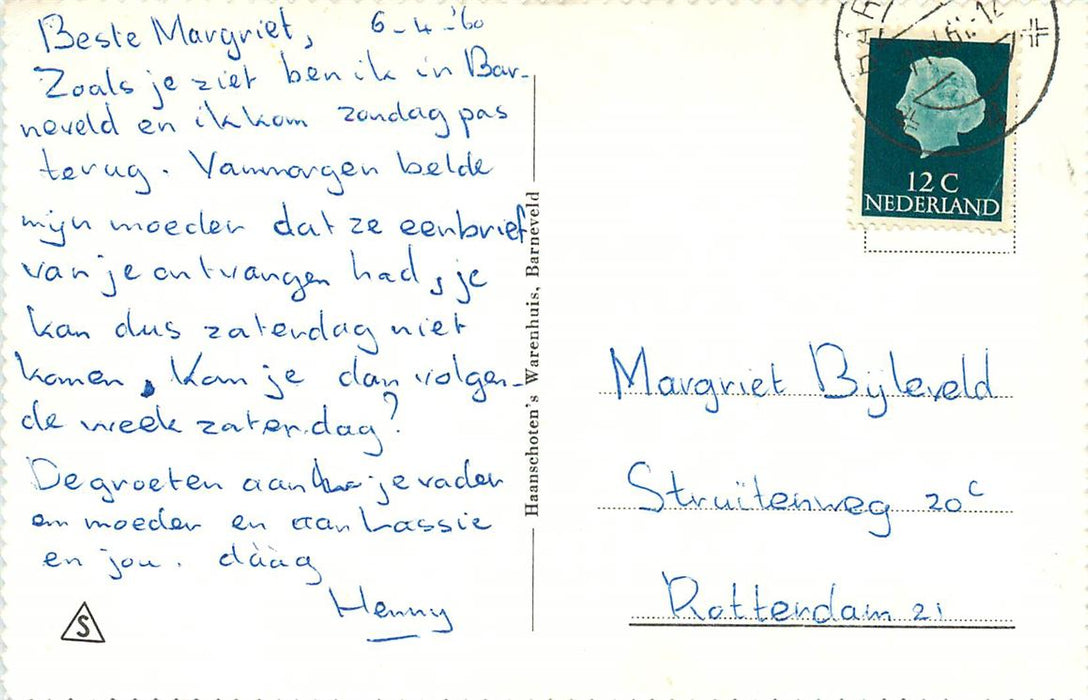 Beste Margriet, 6-4-'60
Zoals je ziet ben ik in Bar-
neveld en ik kom zondag pas
terug. Vanmorgen belde
mijn moeder dat ze een brief
van je ontvangen had, je
kan dus zaterdag niet
komen, Kan je dan volgen-
de week zaterdag?
De groeten aan je vader
en moeder en aan Lassie
en jou. dààg
Henny
S
Haanschoten's Warenhuis, Barneveld
12 C
NEDERLAND
Margriet Bijleveld
Struïtenweg 20c
Rotterdam 21